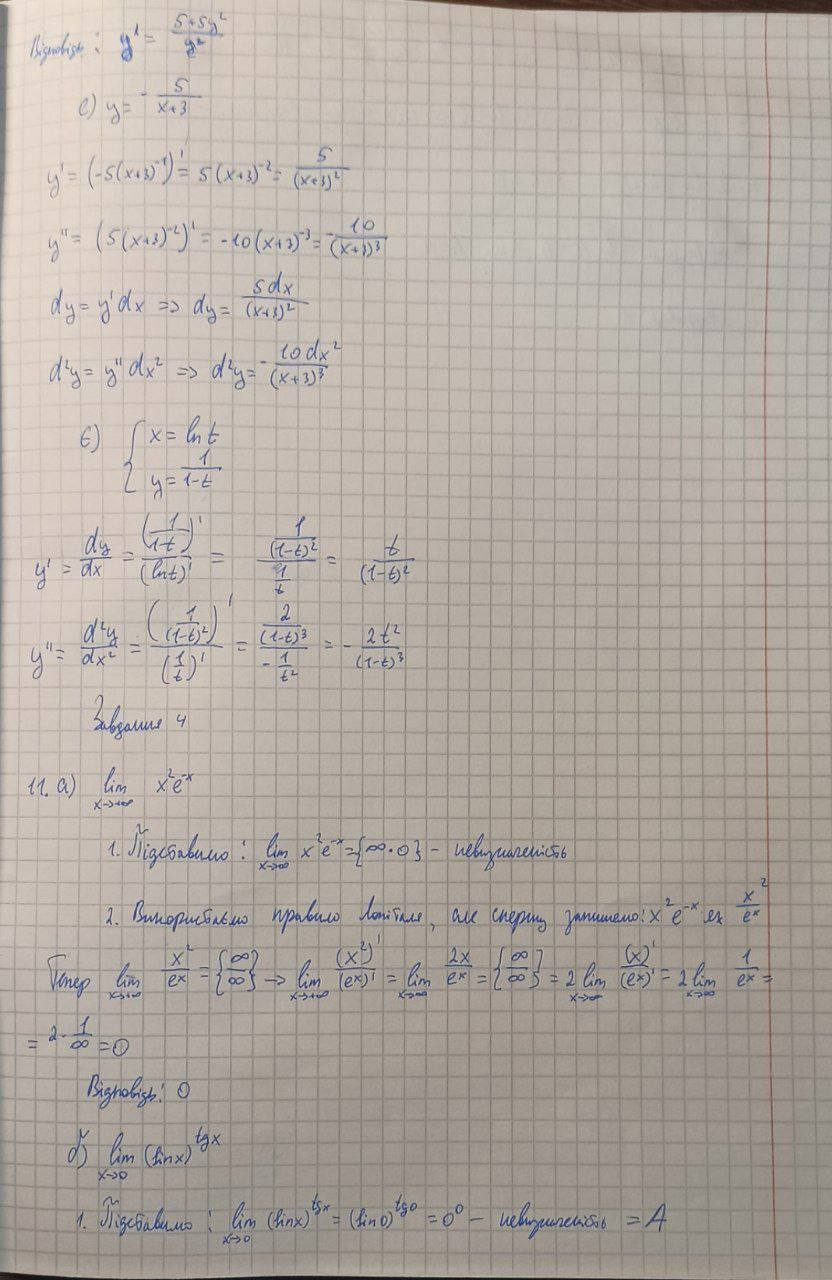 Відповідь: y' = (5+5y²)/y²
е) y = -5/(x+3)
y' = (-5(x+3)⁻¹)' = 5(x+3)⁻² = 5/(x+3)²
y'' = (5(x+3)⁻²)' = -10(x+3)⁻³ = -10/(x+3)³
dy = y'dx => dy = 5dx/(x+3)²
d²y = y''dx² => d²y = -10dx²/(x+3)³
є) { x = ln t
y = 1/(1-t)
y' = dy/dx = (1/(1-t))'/(ln t)' = (1/(1-t)²)/(1/t) = t/(1-t)²
y'' = d²y/dx² = (1/(1-t)²)'/(1/t)' = (2/(1-t)³)/(-1/t²) = -2t²/(1-t)³
Завдання 4
11. а) lim x→+∞ x²e⁻ˣ
1. Підставимо: lim x→∞ x²e⁻ˣ = {∞·0} - невизначеність
2. Використаємо правило Лопіталя, але спершу запишемо: x²e⁻ˣ як x²/eˣ
Тепер lim x→+∞ x²/eˣ = {∞/∞} → lim x→+∞ (x²)'/(eˣ)' = lim x→∞ 2x/eˣ = {∞/∞} = 2 lim x→∞ (x)'/(eˣ)' = 2 lim x→∞ 1/eˣ =
= 2·1/∞ = 0
Відповідь: 0
б) lim x→0 (sin x)^tg x
1. Підставимо: lim x→0 (sin x)^tg x = (sin 0)^tg 0 = 0⁰ - невизначеність = A